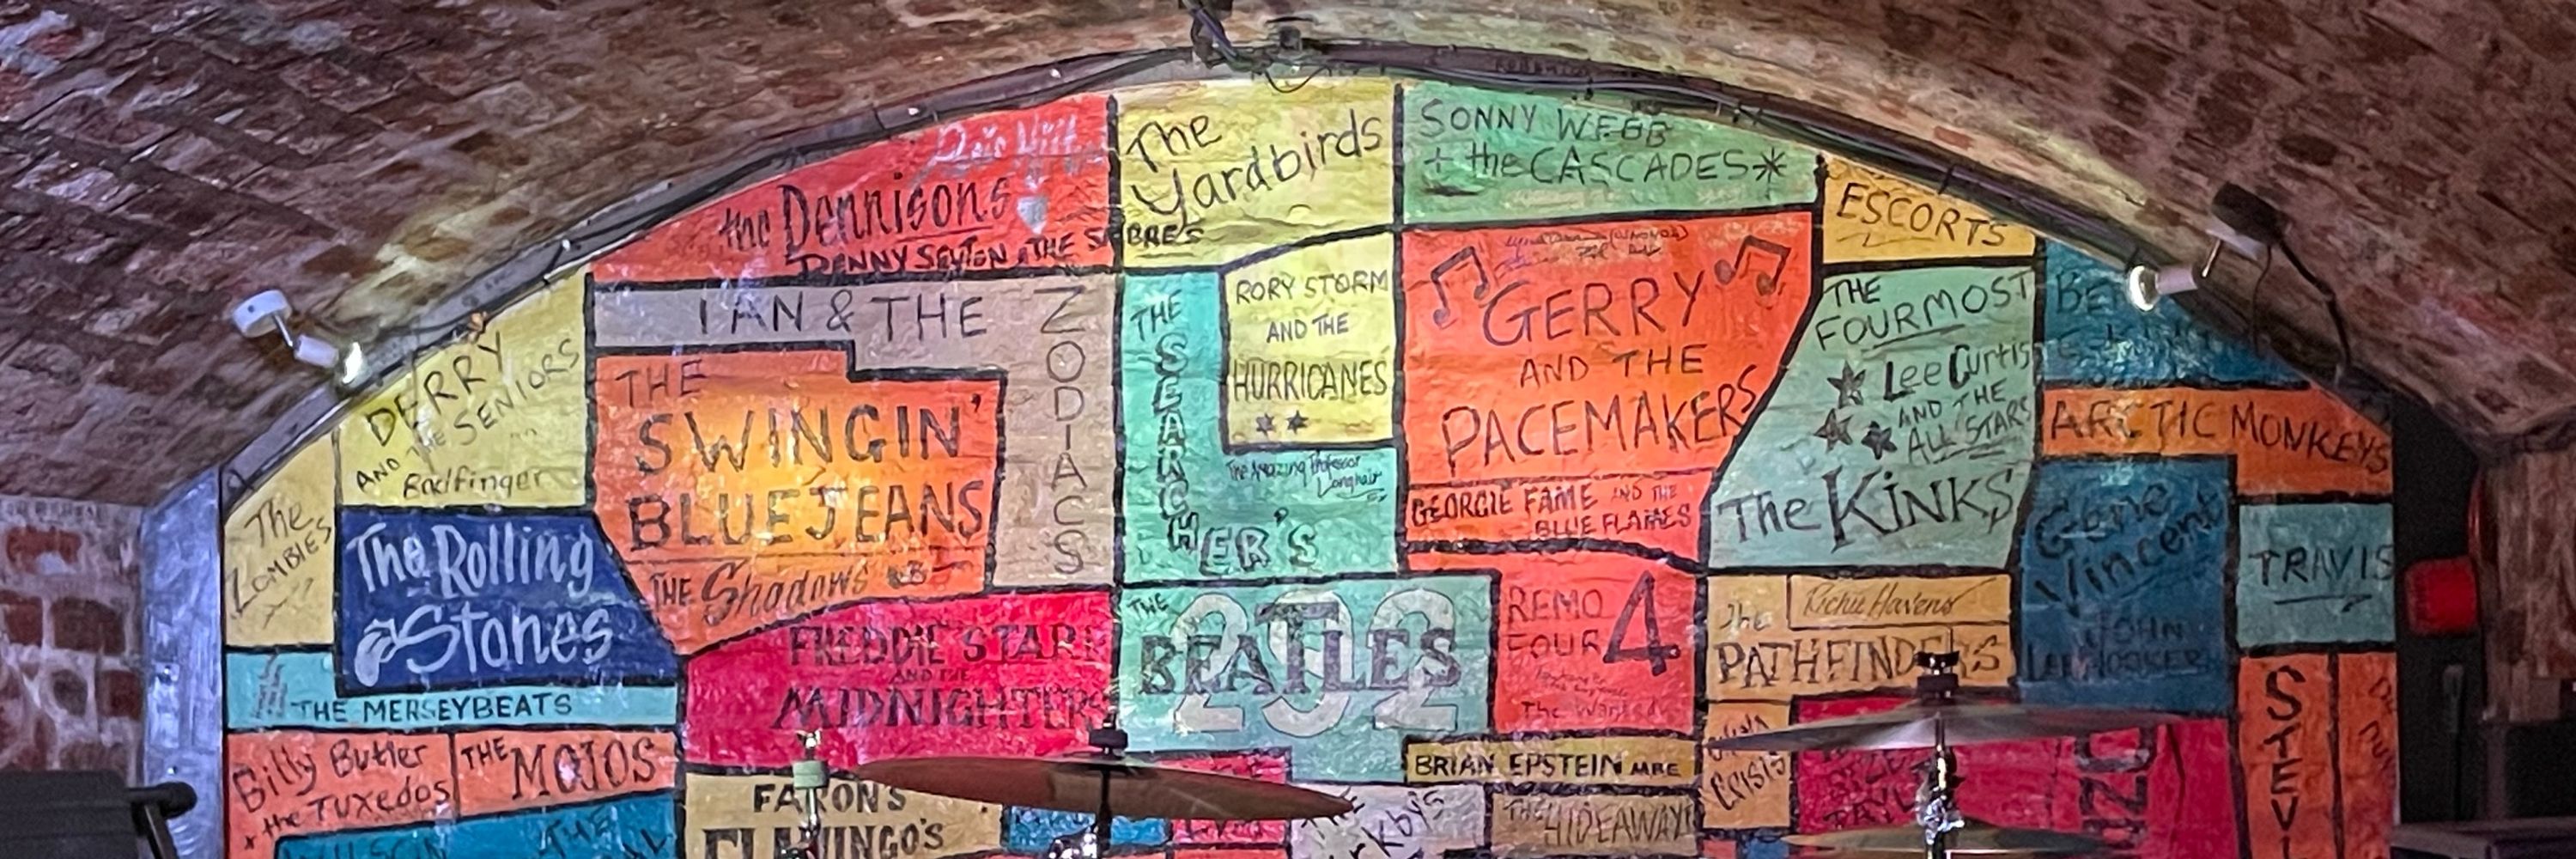 the Dennisons
DENNY SEYTON + THE SABRES
The
Yardbirds
SONNY WEBB
+ the CASCADES*
ESCORTS
IAN & THE ZODIACS
RORY STORM
AND THE
HURRICANES
GERRY
AND THE
PACEMAKERS
THE
FOURMOST
Lee Curtis
AND THE
ALL STARS
The KiNKS
ARCTIC MONKEYS
DERRY
AND THE SENIORS
Badfinger
The
ZOMBIES
The Rolling
Stones
THE
SWINGIN'
BLUEJEANS
THE Shadows
THE
SEARCHER'S
The Amazing Professor
Longhair
GEORGIE FAME AND THE
BLUE FLAMES
Gene
Vincent
JOHN
LEE HOOKER
TRAVIS
THE MERSEYBEATS
FREDDIE STARR
AND THE
MIDNIGHTERS
THE
BEATLES
292
REMO
FOUR 4
The
Richie Havens
PATHFINDERS
Billy Butler
+ the TUXEDOS
THE MOJOS
BRIAN EPSTEIN MBE
FARON'S
FLAMINGO'S
THE HIDEAWAYS
CRISIS
STEVI